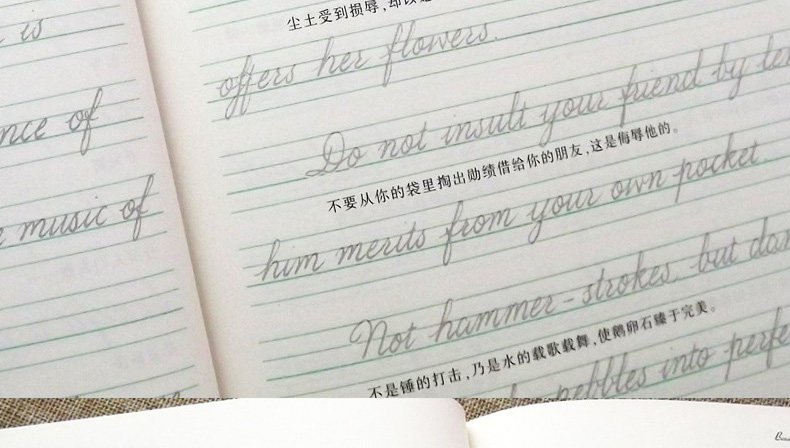 is
nce of
music of
尘土受到损辱,却以
offers her flowers.
Do not insult your friend by
不要从你的袋里掏出勋绩借给你的朋友,这是侮辱他的。
him merits from your own pocket.
Not hammer-strokes, but
不是锤的打击,乃是水的载歌载舞,使鹅卵石臻于完美。
pebbles into perfe